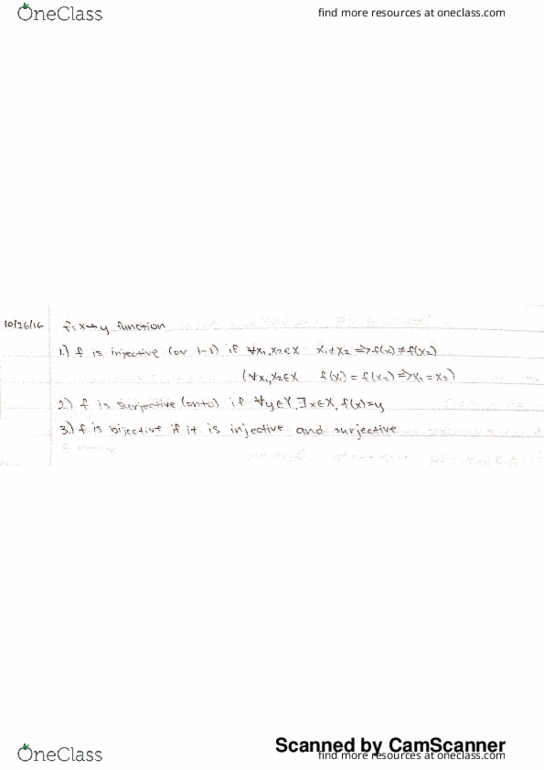 OneClass
find more resources at oneclass.com
10/26/16 f: x→y function
1.) f is injective (or 1-1) if ∀x₁,x₂∈X x₁≠x₂ ⇒ f(x) ≠ f(x₂)
(∀x₁,x₂∈X f(x₁) = f(x₂) ⇒ x₁ = x₂)
2.) f is surjective (onto) if ∀y∈Y, ∃x∈X, f(x)=y
3.) f is bijective if it is injective and surjective
Scanned by CamScanner
OneClass
find more resources at oneclass.com